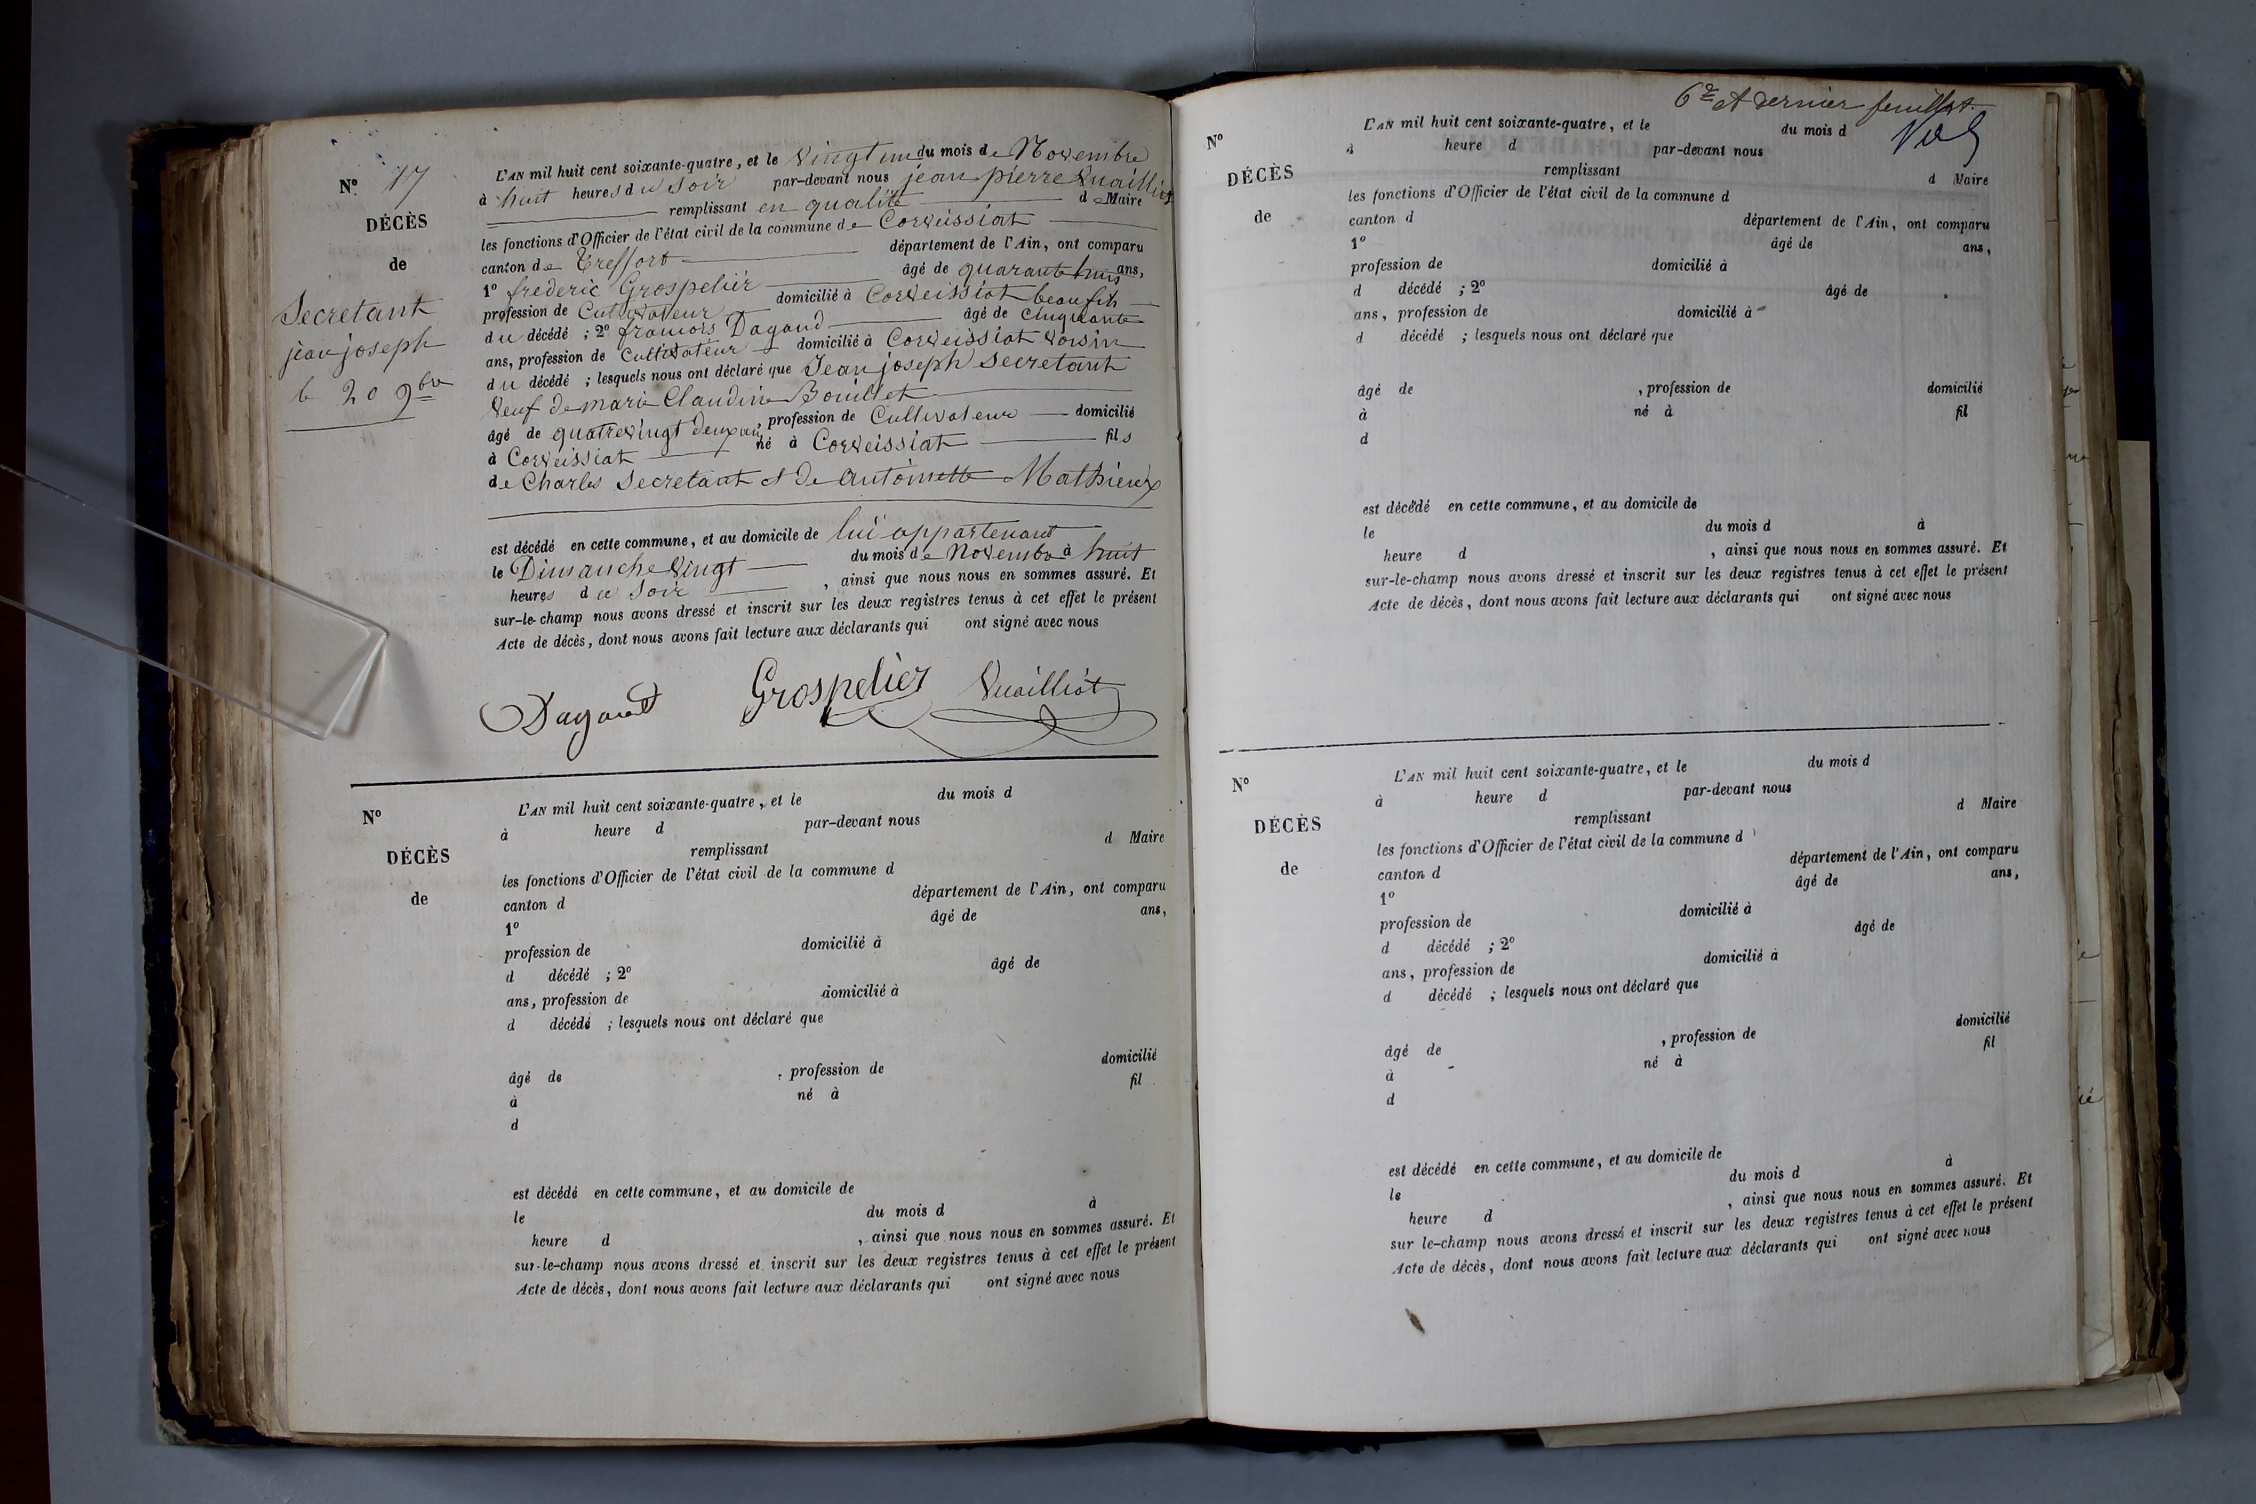 Nº 17
DÉCÈS
de
Secretant
jean joseph
le 20 9bre
L'AN mil huit cent soixante-quatre, et le vingt un du mois de Novembre
à huit heures du Soir par-devant nous jean pierre Vuailliot
remplissant en qualité de Maire
les fonctions d'Officier de l'état civil de la commune de Corveissiat
canton de Treffort département de l'Ain, ont comparu
1º frederic Grospelier âgé de quarante huit ans,
profession de Cultivateur domicilié à Corveissiat beau fils
du décédé ; 2º francois Dagand âgé de cinquante
ans, profession de Cultivateur domicilié à Corveissiat voisin
du décédé ; lesquels nous ont déclaré que Jean joseph Secretant
Veuf de marie Claudine Bouillet
âgé de quatre vingt deux ans, profession de Cultivateur domicilié
à Corveissiat né à Corveissiat fils
de Charles Secretant et de antoinette Mathieux
est décédé en cette commune, et au domicile de lui appartenant
le Dimanche vingt du mois de Novembre à huit
heures du Soir , ainsi que nous nous en sommes assuré. Et
sur-le-champ nous avons dressé et inscrit sur les deux registres tenus à cet effet le présent
Acte de décès, dont nous avons fait lecture aux déclarants qui ont signé avec nous
Dagand Grospelier Vuailliot
Nº
DÉCÈS
de
L'AN mil huit cent soixante-quatre, et le du mois d
à heure d par-devant nous
remplissant d Maire
les fonctions d'Officier de l'état civil de la commune d
canton d département de l'Ain, ont comparu
1º âgé de ans,
profession de domicilié à
d décédé ; 2º âgé de
ans, profession de domicilié à
d décédé ; lesquels nous ont déclaré que
âgé de , profession de domicilié
à né à fil
d
est décédé en cette commune, et au domicile de
le du mois d à
heure d , ainsi que nous nous en sommes assuré. Et
sur-le-champ nous avons dressé et inscrit sur les deux registres tenus à cet effet le présent
Acte de décès, dont nous avons fait lecture aux déclarants qui ont signé avec nous
6e et dernier feuillet
Nº
DÉCÈS
de
L'AN mil huit cent soixante-quatre, et le du mois d
à heure d par-devant nous
remplissant d Maire
les fonctions d'Officier de l'état civil de la commune d
canton d département de l'Ain, ont comparu
1º âgé de ans,
profession de domicilié à
d décédé ; 2º âgé de
ans, profession de domicilié à
d décédé ; lesquels nous ont déclaré que
âgé de , profession de domicilié
à né à fil
d
est décédé en cette commune, et au domicile de
le du mois d à
heure d , ainsi que nous nous en sommes assuré. Et
sur-le-champ nous avons dressé et inscrit sur les deux registres tenus à cet effet le présent
Acte de décès, dont nous avons fait lecture aux déclarants qui ont signé avec nous
Nº
DÉCÈS
de
L'AN mil huit cent soixante-quatre, et le du mois d
à heure d par-devant nous
remplissant d Maire
les fonctions d'Officier de l'état civil de la commune d
canton d département de l'Ain, ont comparu
1º âgé de ans,
profession de domicilié à
d décédé ; 2º âgé de
ans, profession de domicilié à
d décédé ; lesquels nous ont déclaré que
âgé de , profession de domicilié
à né à fil
d
est décédé en cette commune, et au domicile de
le du mois d à
heure d , ainsi que nous nous en sommes assuré. Et
sur le-champ nous avons dressé et inscrit sur les deux registres tenus à cet effet le présent
Acte de décès, dont nous avons fait lecture aux déclarants qui ont signé avec nous